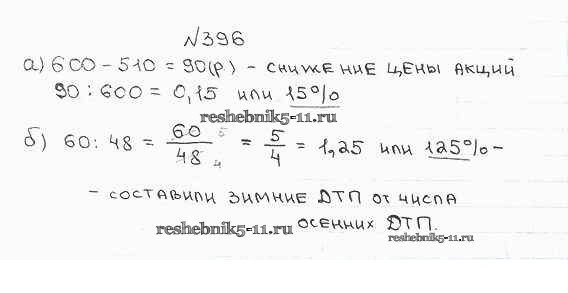 №396
а) 600 - 510 = 90(р) - снижение цены акций
90 : 600 = 0,15 или 15%
reshebnik5-11.ru
б) 60 : 48 = 60/48 5 4 = 5/4 = 1,25 или 125% -
- составили зимние ДТП от числа
осенних ДТП.
reshebnik5-11.ru
reshebnik5-11.ru